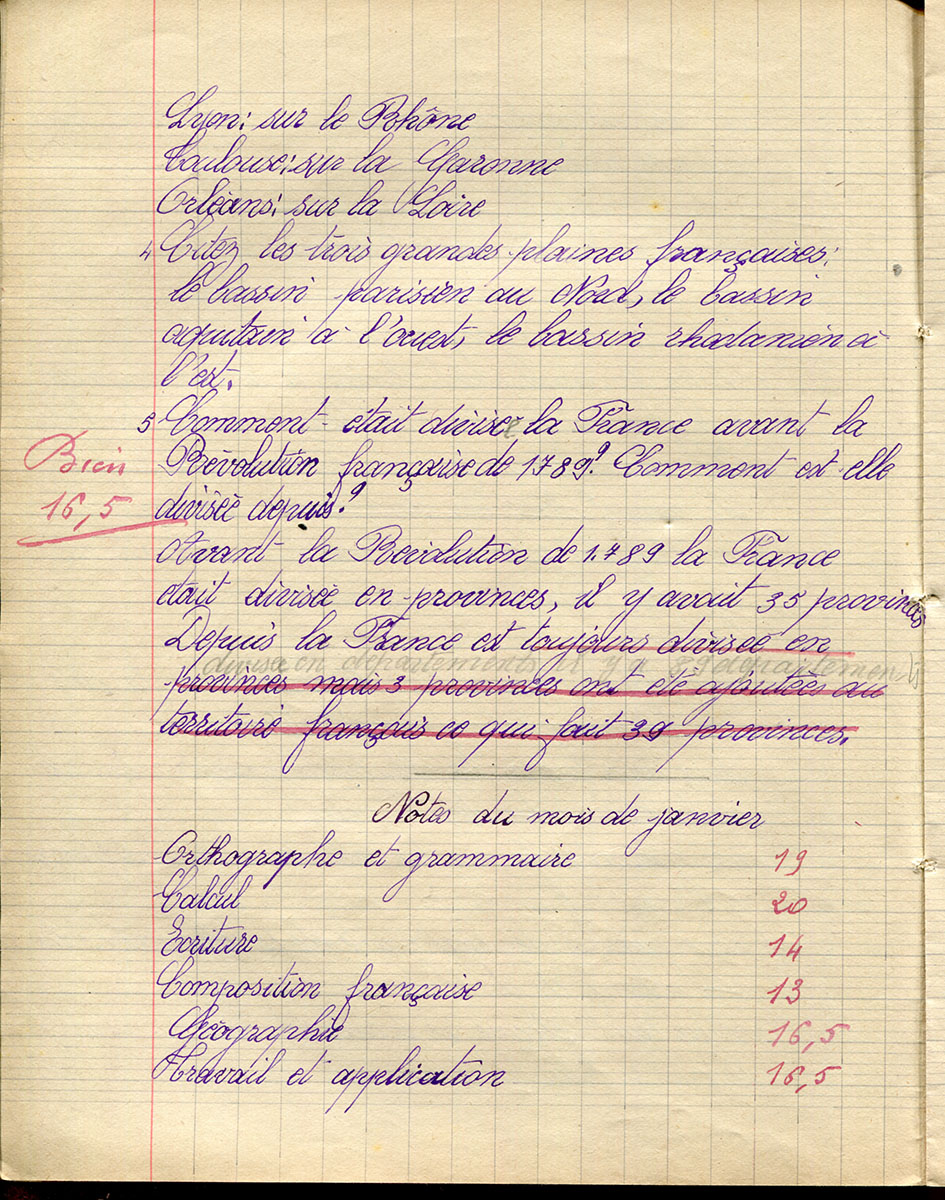 Lyon: sur le Rhône
Toulouse: sur la Garonne
Orléans: sur la Loire
4 Citez les trois grandes plaines françaises:
le bassin parisien au Nord, le bassin
aquitain à l'ouest, le bassin rhodanien à
l'est.
5 Comment était divisée la France avant la
Révolution française de 1789? Comment est elle
divisée depuis?
Bien
16,5
Avant la Révolution de 1.789 la France
était divisée en provinces, il y avait 35 provinces
Depuis la France est toujours divisée en
divisée en départements il y a 89 départements
provinces mais 3 provinces ont été ajoutées au
territoire français ce qui fait 39 provinces.
Notes du mois de janvier
Orthographe et grammaire 19
Calcul 20
Ecriture 14
Composition française 13
Géographie 16,5
Travail et application 16,5